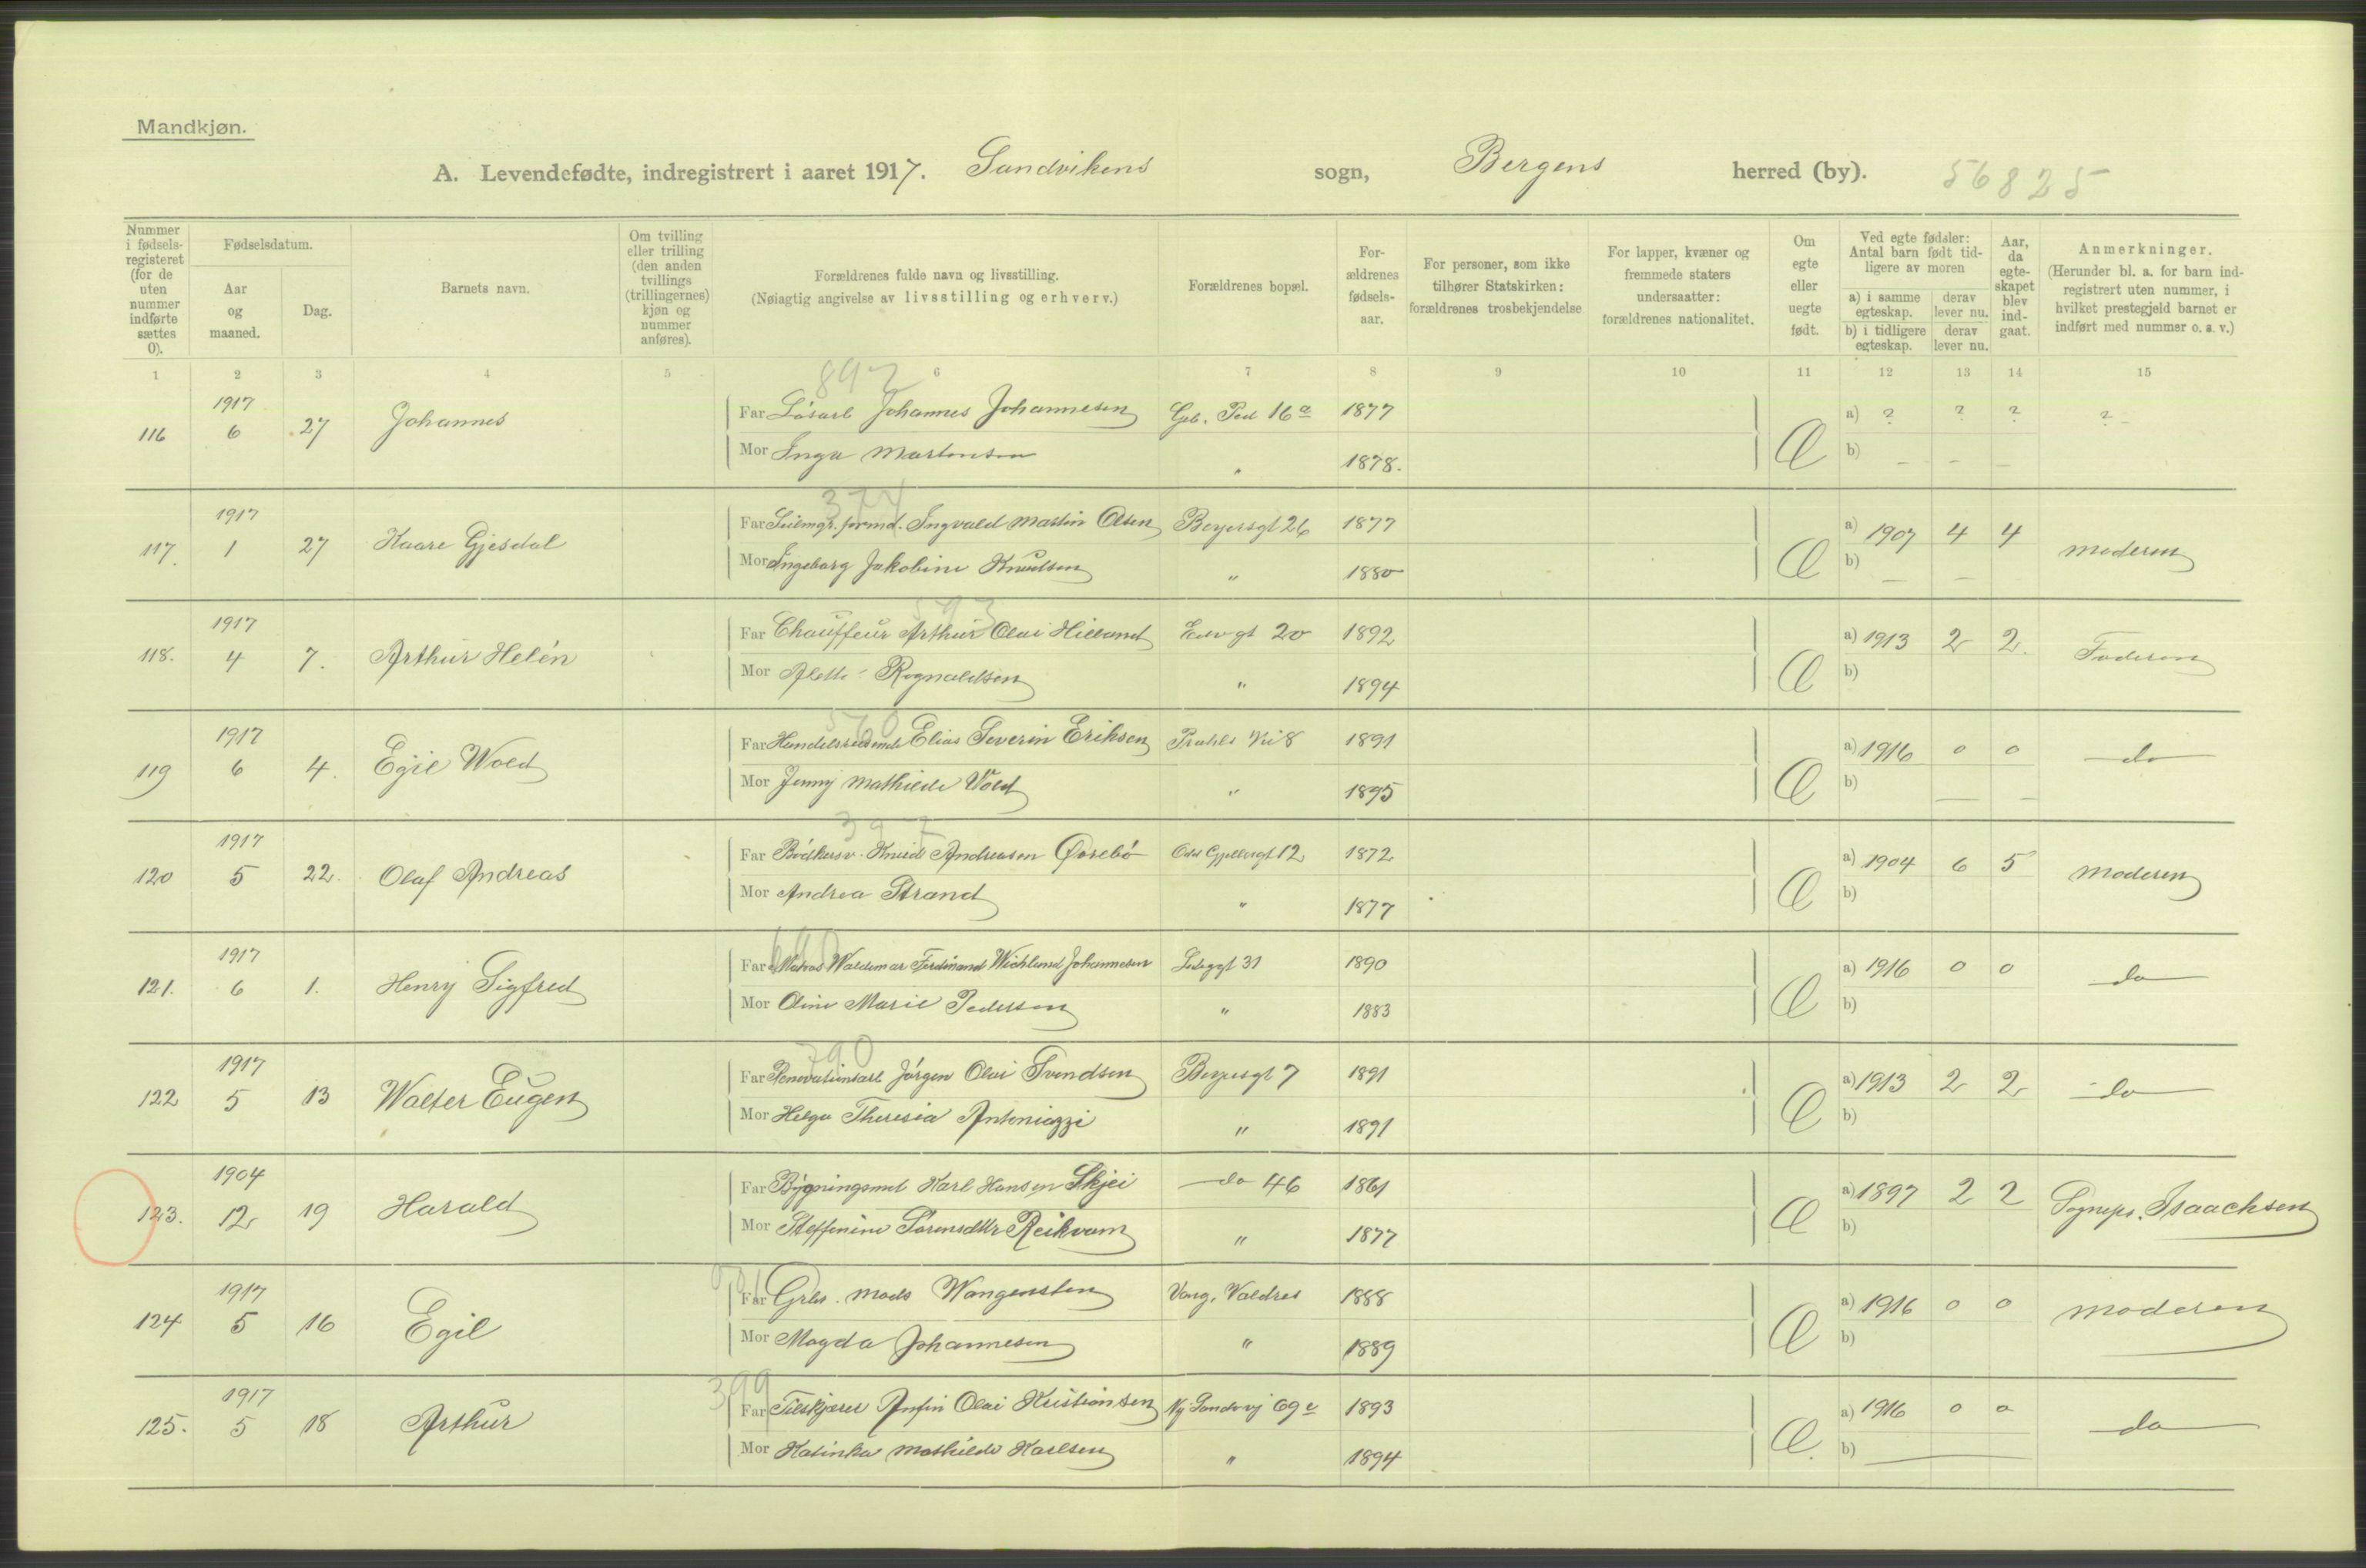 Mandkjøn.
A. Levendefødte, indregistrert i aaret 1917. Sandvikens sogn, Bergens herred (by). 56825
Nummer i fødsels-registeret (for de uten nummer indførte sættes 0).
Fødselsdatum.
Aar og maaned.
Dag.
Barnets navn.
Om tvilling eller trilling (den anden tvillings (trillingernes) kjøn og nummer anføres).
Forældrenes fulde navn og livsstilling.
(Nøiagtig angivelse av livsstilling og erhverv.)
Forældrenes bopæl.
For-ældrenes fødsels-aar.
For personer, som ikke tilhører Statskirken: forældrenes trosbekjendelse
For lapper, kvæner og fremmede staters undersaatter: forældrenes nationalitet.
Om egte eller uegte født.
Ved egte fødsler: Antal barn født tid-ligere av moren
a) i samme egteskap. derav lever nu.
b) i tidligere egteskap. derav lever nu.
Aar, da egte-skapet blev ind-gaat.
Anmerkninger.
(Herunder bl. a. for barn ind-registrert uten nummer, i hvilket prestegjeld barnet er indført med nummer o. s. v.)
1 2 3 4 5 6 7 8 9 10 11 12 13 14 15
892
116 1917 6 27 Johannes Far Løsarb Johannes Johannesen 16a 1877 Æ a) ? ? ? ?
Mor Inga Martensen " 1878. b) — — —
374
117. 1917 1 27 Kaare Gjesdal Far formd. Ingvald Martin Olsen Beyersgt 26 1877 Æ a) 1907 4 4 moderen
Mor Ingeborg Jakobine Knudsen " 1880 b) — —
593
118. 1917 4 7. Arthur Helén Far Chauffeur Arthur Olai Hilland 20 1892 Æ a) 1913 2 2. Faderen
Mor Aletta Rognaldsen " 1894 b)
560
119 1917 6 4. Egil Wold Far Elias Severin Eriksen 8 1891 Æ a) 1916 0 0 do
Mor Jenny Mathilde Wold " 1895 b) — —
397
120 1917 5 22. Olaf Andreas Far Bødkersv. Knud Andreasen Øvrebø 12 1872 Æ a) 1904 6 5 moderen
Mor Andrea Strand " 1877 b)
121. 1917 6 1. Henry Sigfred Far Matros Waldemar Ferdinand Wichlund Johannesen 31 1890 Æ a) 1916 0 0 do
Mor Oline Marie Pedersen " 1883 b)
790
122 1917 5 13 Walter Eugen Far Renovationsarb Jørgen Olai Svendsen Beyersgt 7 1891 Æ a) 1913 2 2 do
Mor Helga Theresia Antoniazzi " 1891 b)
123. 1904 12 19 Harald Far Bygningssmed Karl Hansen Skjei do 46 1861 Æ a) 1897 2 2 Sognepr. Isaachsen
Mor Steffenine Sørensdtr Reikvam " 1877 b)
124 1917 5 16 Egil Far Grbr. Mads Wangensten Vang, Valdres 1888 Æ a) 1916 0 0 moderen
Mor Magda Johannesen " 1889 b)
399
125. 1917 5 18 Arthur Far Tilskjærer Anfin Olai Kristiansen Ny Sandvvj 69c 1893 Æ a) 1916 0 0 do
Mor Katinka Mathilde Karlsen " 1894 b) —